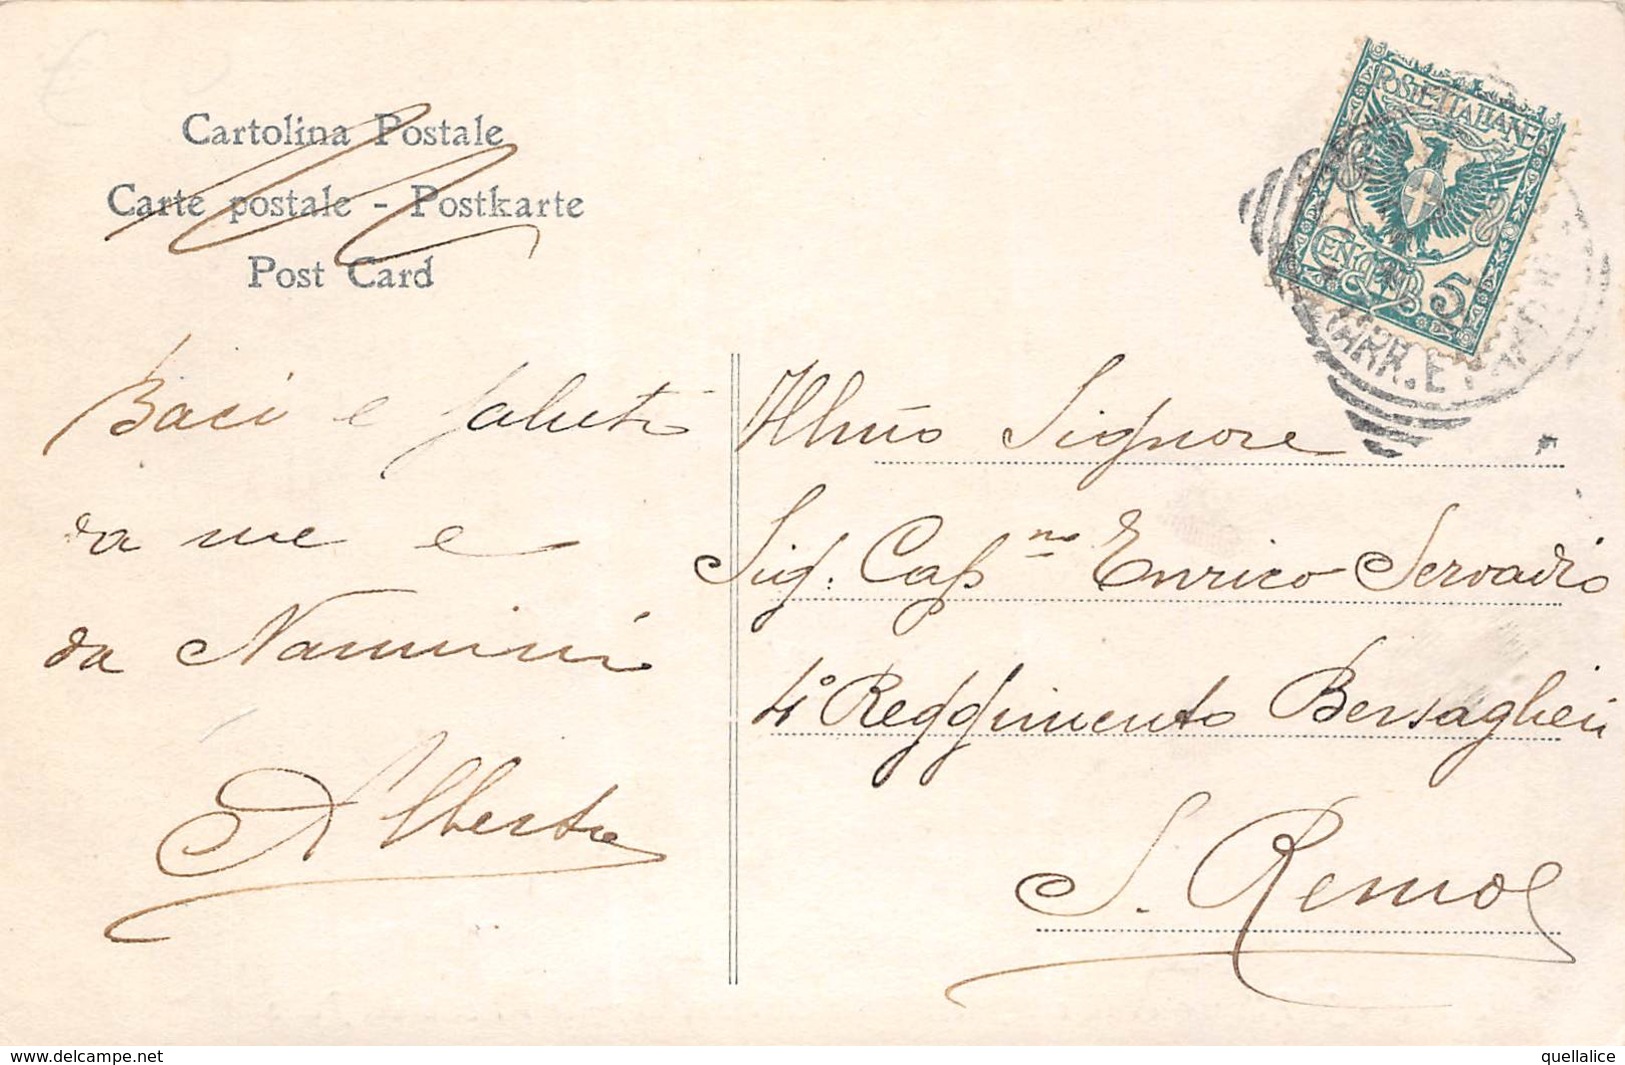 Cartolina Postale
Carte postale - Postkarte
Post Card
POSTE ITALIANE
CENT. 5
ARR. E
Baci e saluti
da me e
da Nannini
Alberto
Illmo Signore
Sig. Cap.no Enrico Servadio
4° Reggimento Bersaglieri
S. Remo
www.delcampe.net
quellalice